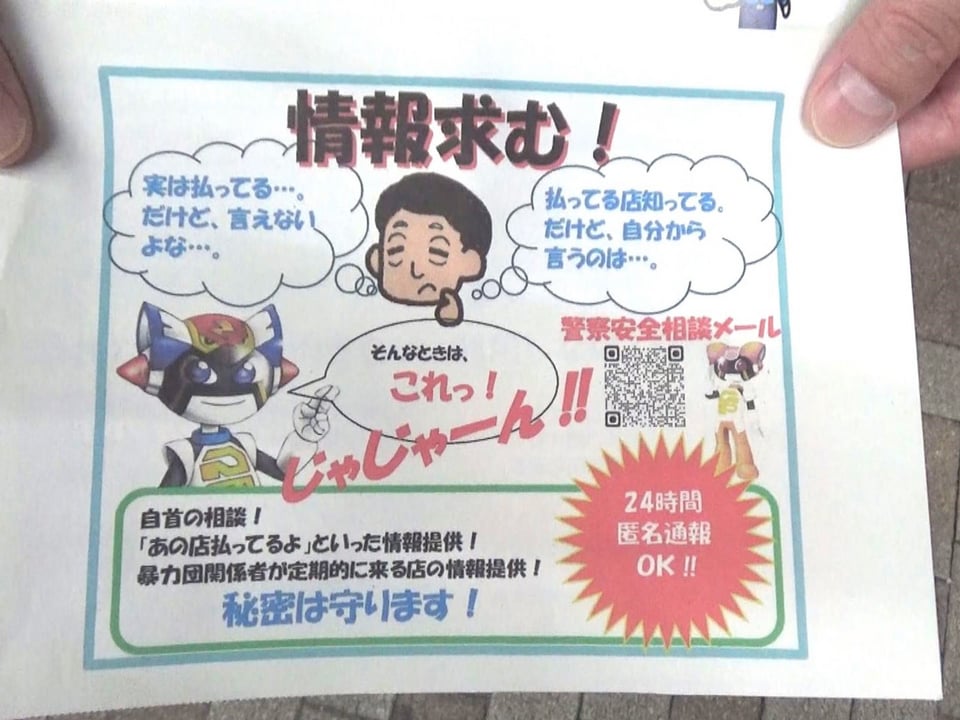 情報求む！
実は払ってる…。
だけど、言えない
よな…。
払ってる店知ってる。
だけど、自分から
言うのは…。
そんなときは、
これっ！
じゃじゃーん!!
警察安全相談メール
自首の相談！
「あの店払ってるよ」といった情報提供！
暴力団関係者が定期的に来る店の情報提供！
秘密は守ります！
24時間
匿名通報
OK!!